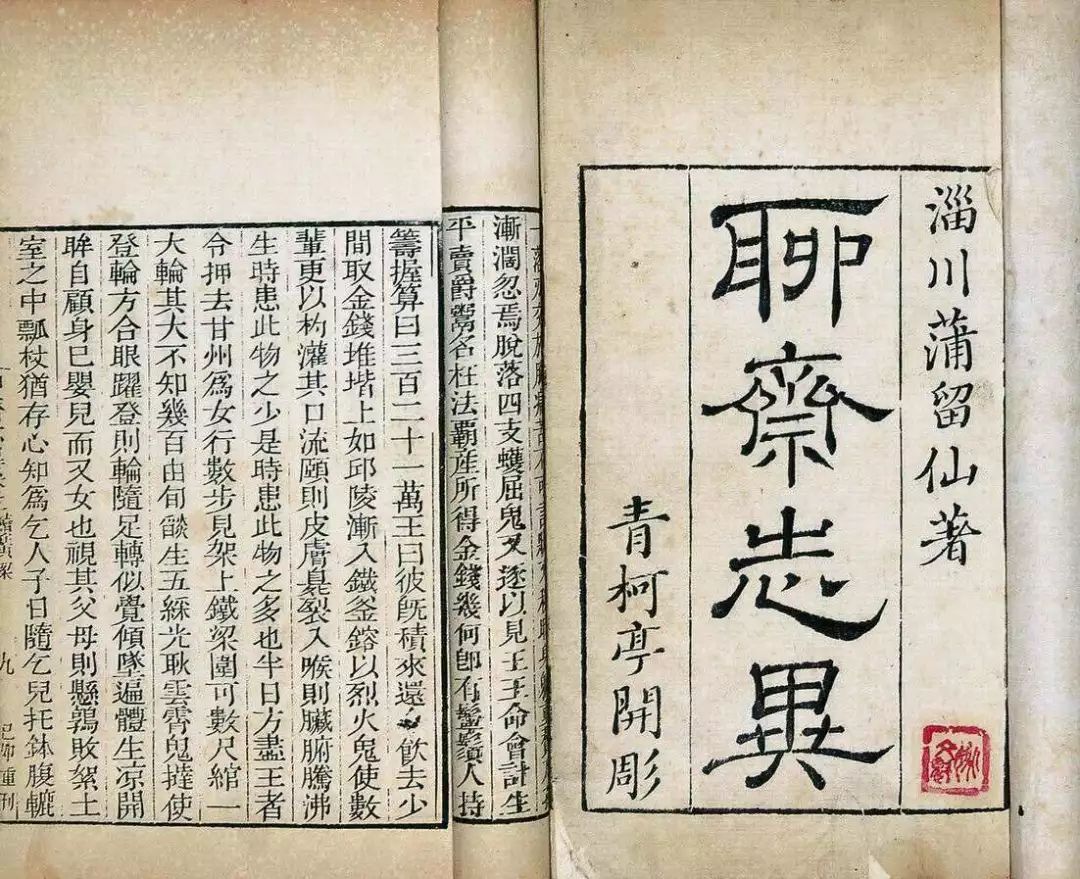 淄川蒲留仙著
聊齋志異
青柯亭開彫
漸濶忽焉脫落四支蠖屈鬼又逐以見王王命會計生
平賣爵鬻名枉法覇產所得金錢幾何卽有鬡鬚人持
籌握算曰三百二十一萬王曰彼旣積來還令飮去少
間取金錢堆堦上如邱陵漸入鐵釜鎔以烈火鬼使數
輩更以杓灌其口流頤則皮膚臭裂入喉則臟腑騰沸
生時患此物之少是時患此物之多也半日方盡王者
令押去甘州爲女行數步見架上鐵梁圍可數尺綰一
大輪其大不知幾百由旬燄生五綵光耿雲霄鬼撻使
登輪方合眼躍登則輪隨足轉似覺傾墜遍體生凉開
眸自顧身已嬰兒而又女也視其父母則懸鶉敗絮土
室之中瓢杖猶存心知爲乞人子日隨乞兒托鉢腹轆
九
重刊